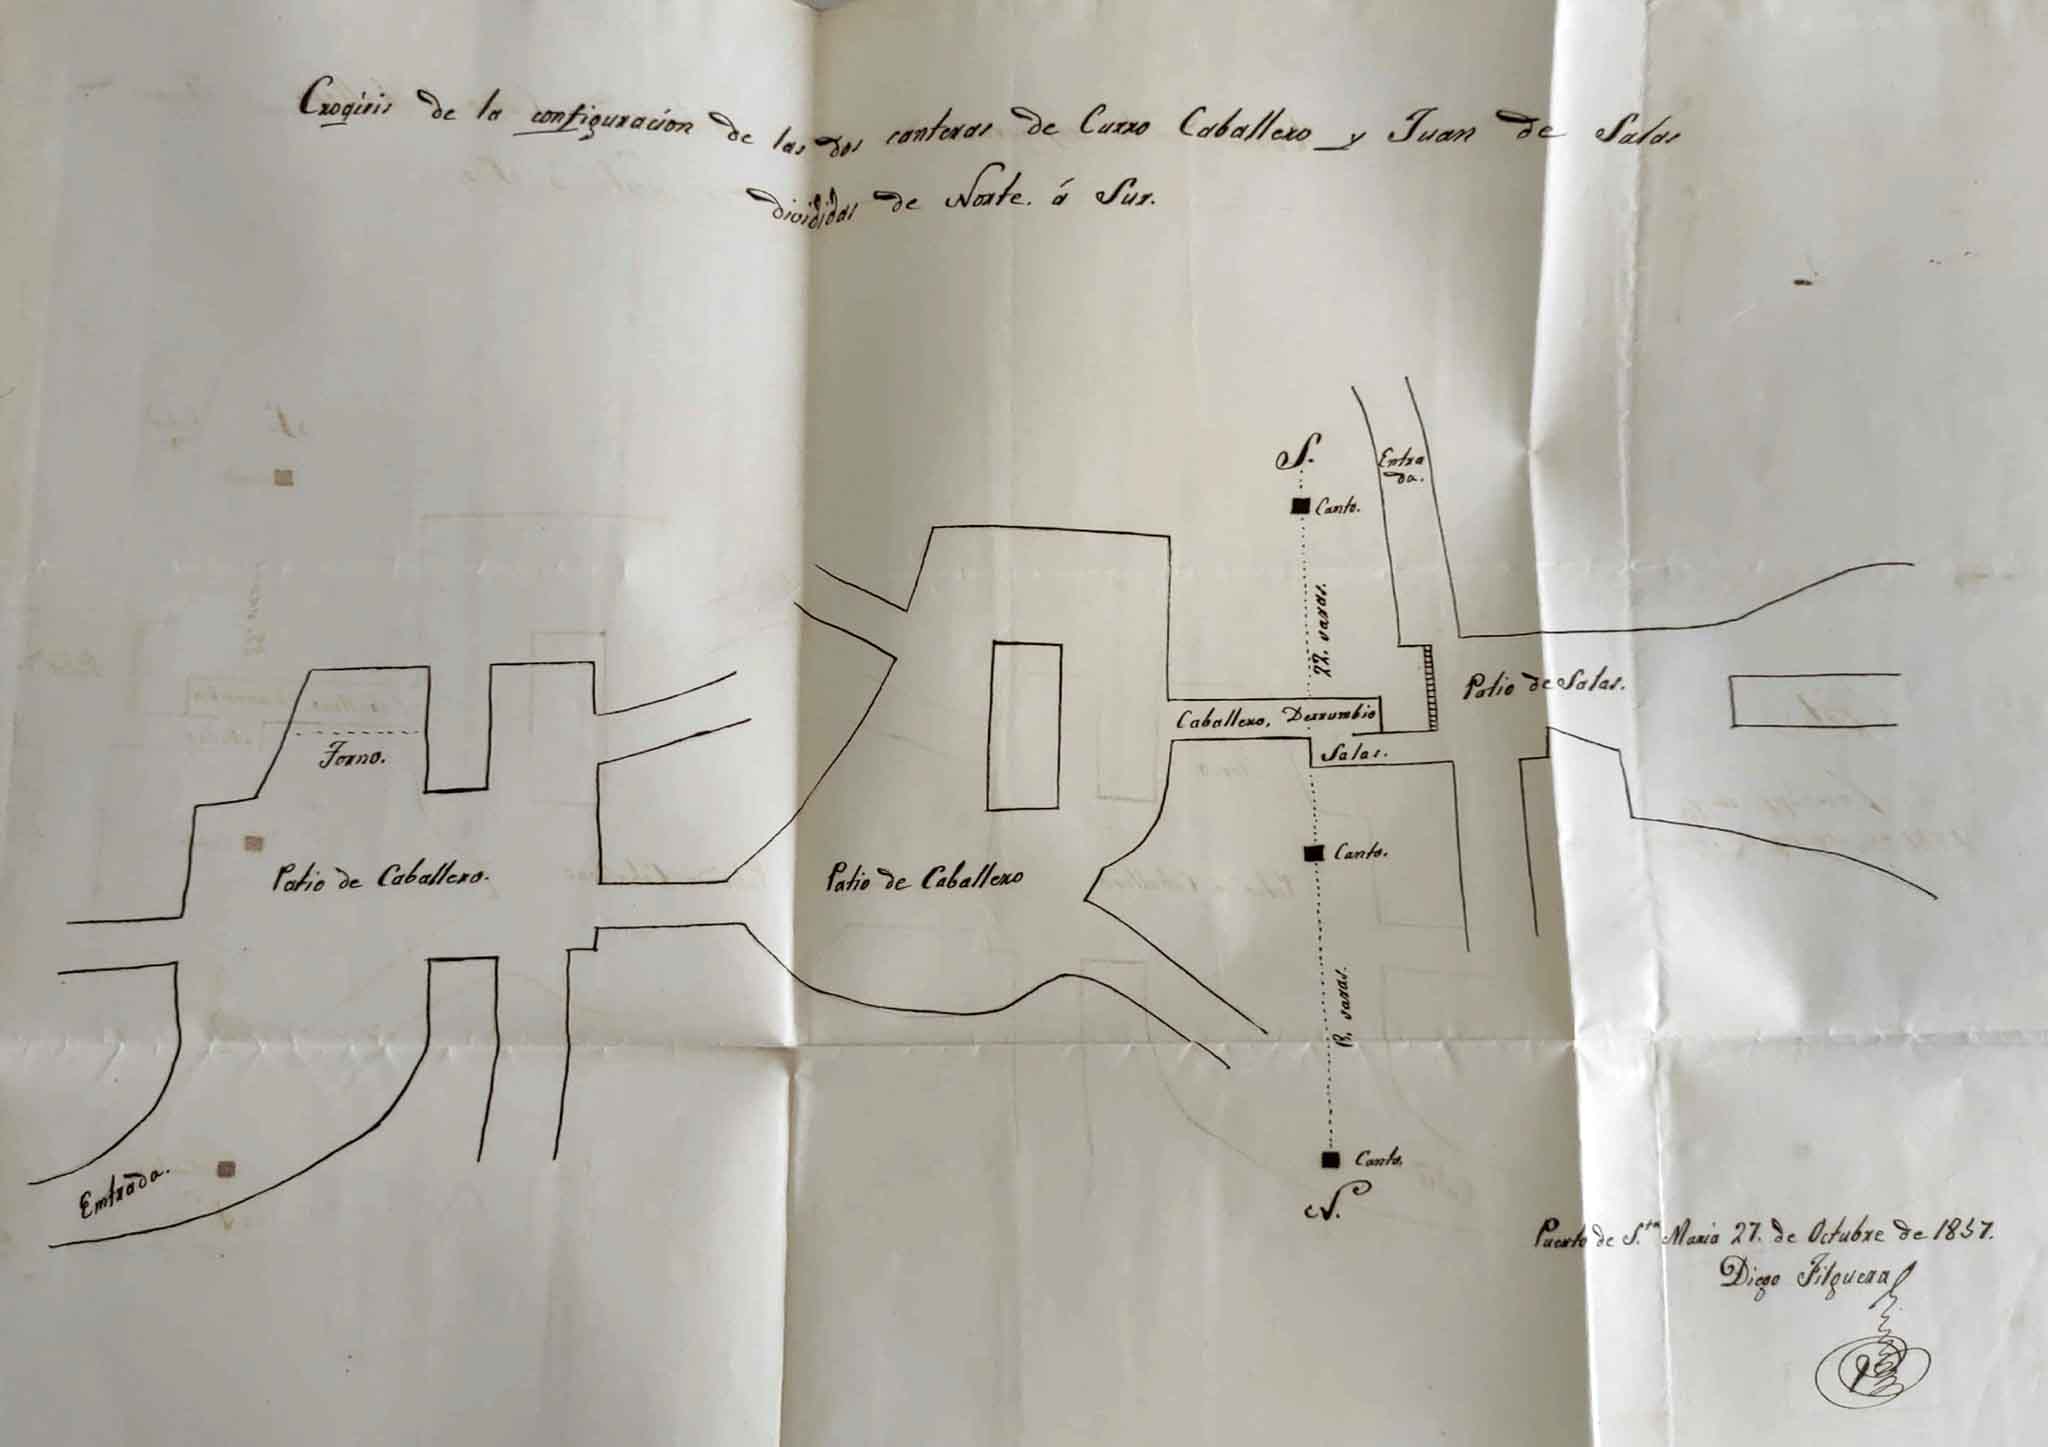 Croquis de la configuracion de las dos canteras de Curro Caballero y Juan de Salas
divididas de Norte. á Sur.
S.
Entra
da.
Canto.
22. varas.
Patio de Salas.
Caballero. Derrumbio
Salas.
Forno.
Canto.
Patio de Caballero.
Patio de Caballero
varas.
Canto.
N.
Entrada.
Puerto de S.ta Maria 27. de Octubre de 1857.
Diego Filguera